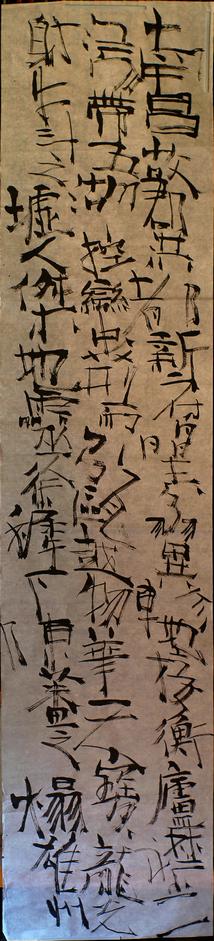 南昌故郡洪都新府星分翼軫地接衡廬襟三
江而帶五湖控蠻荊而引甌越物華天寶龍光
射牛斗之墟人傑地靈徐孺下陳蕃之榻雄州